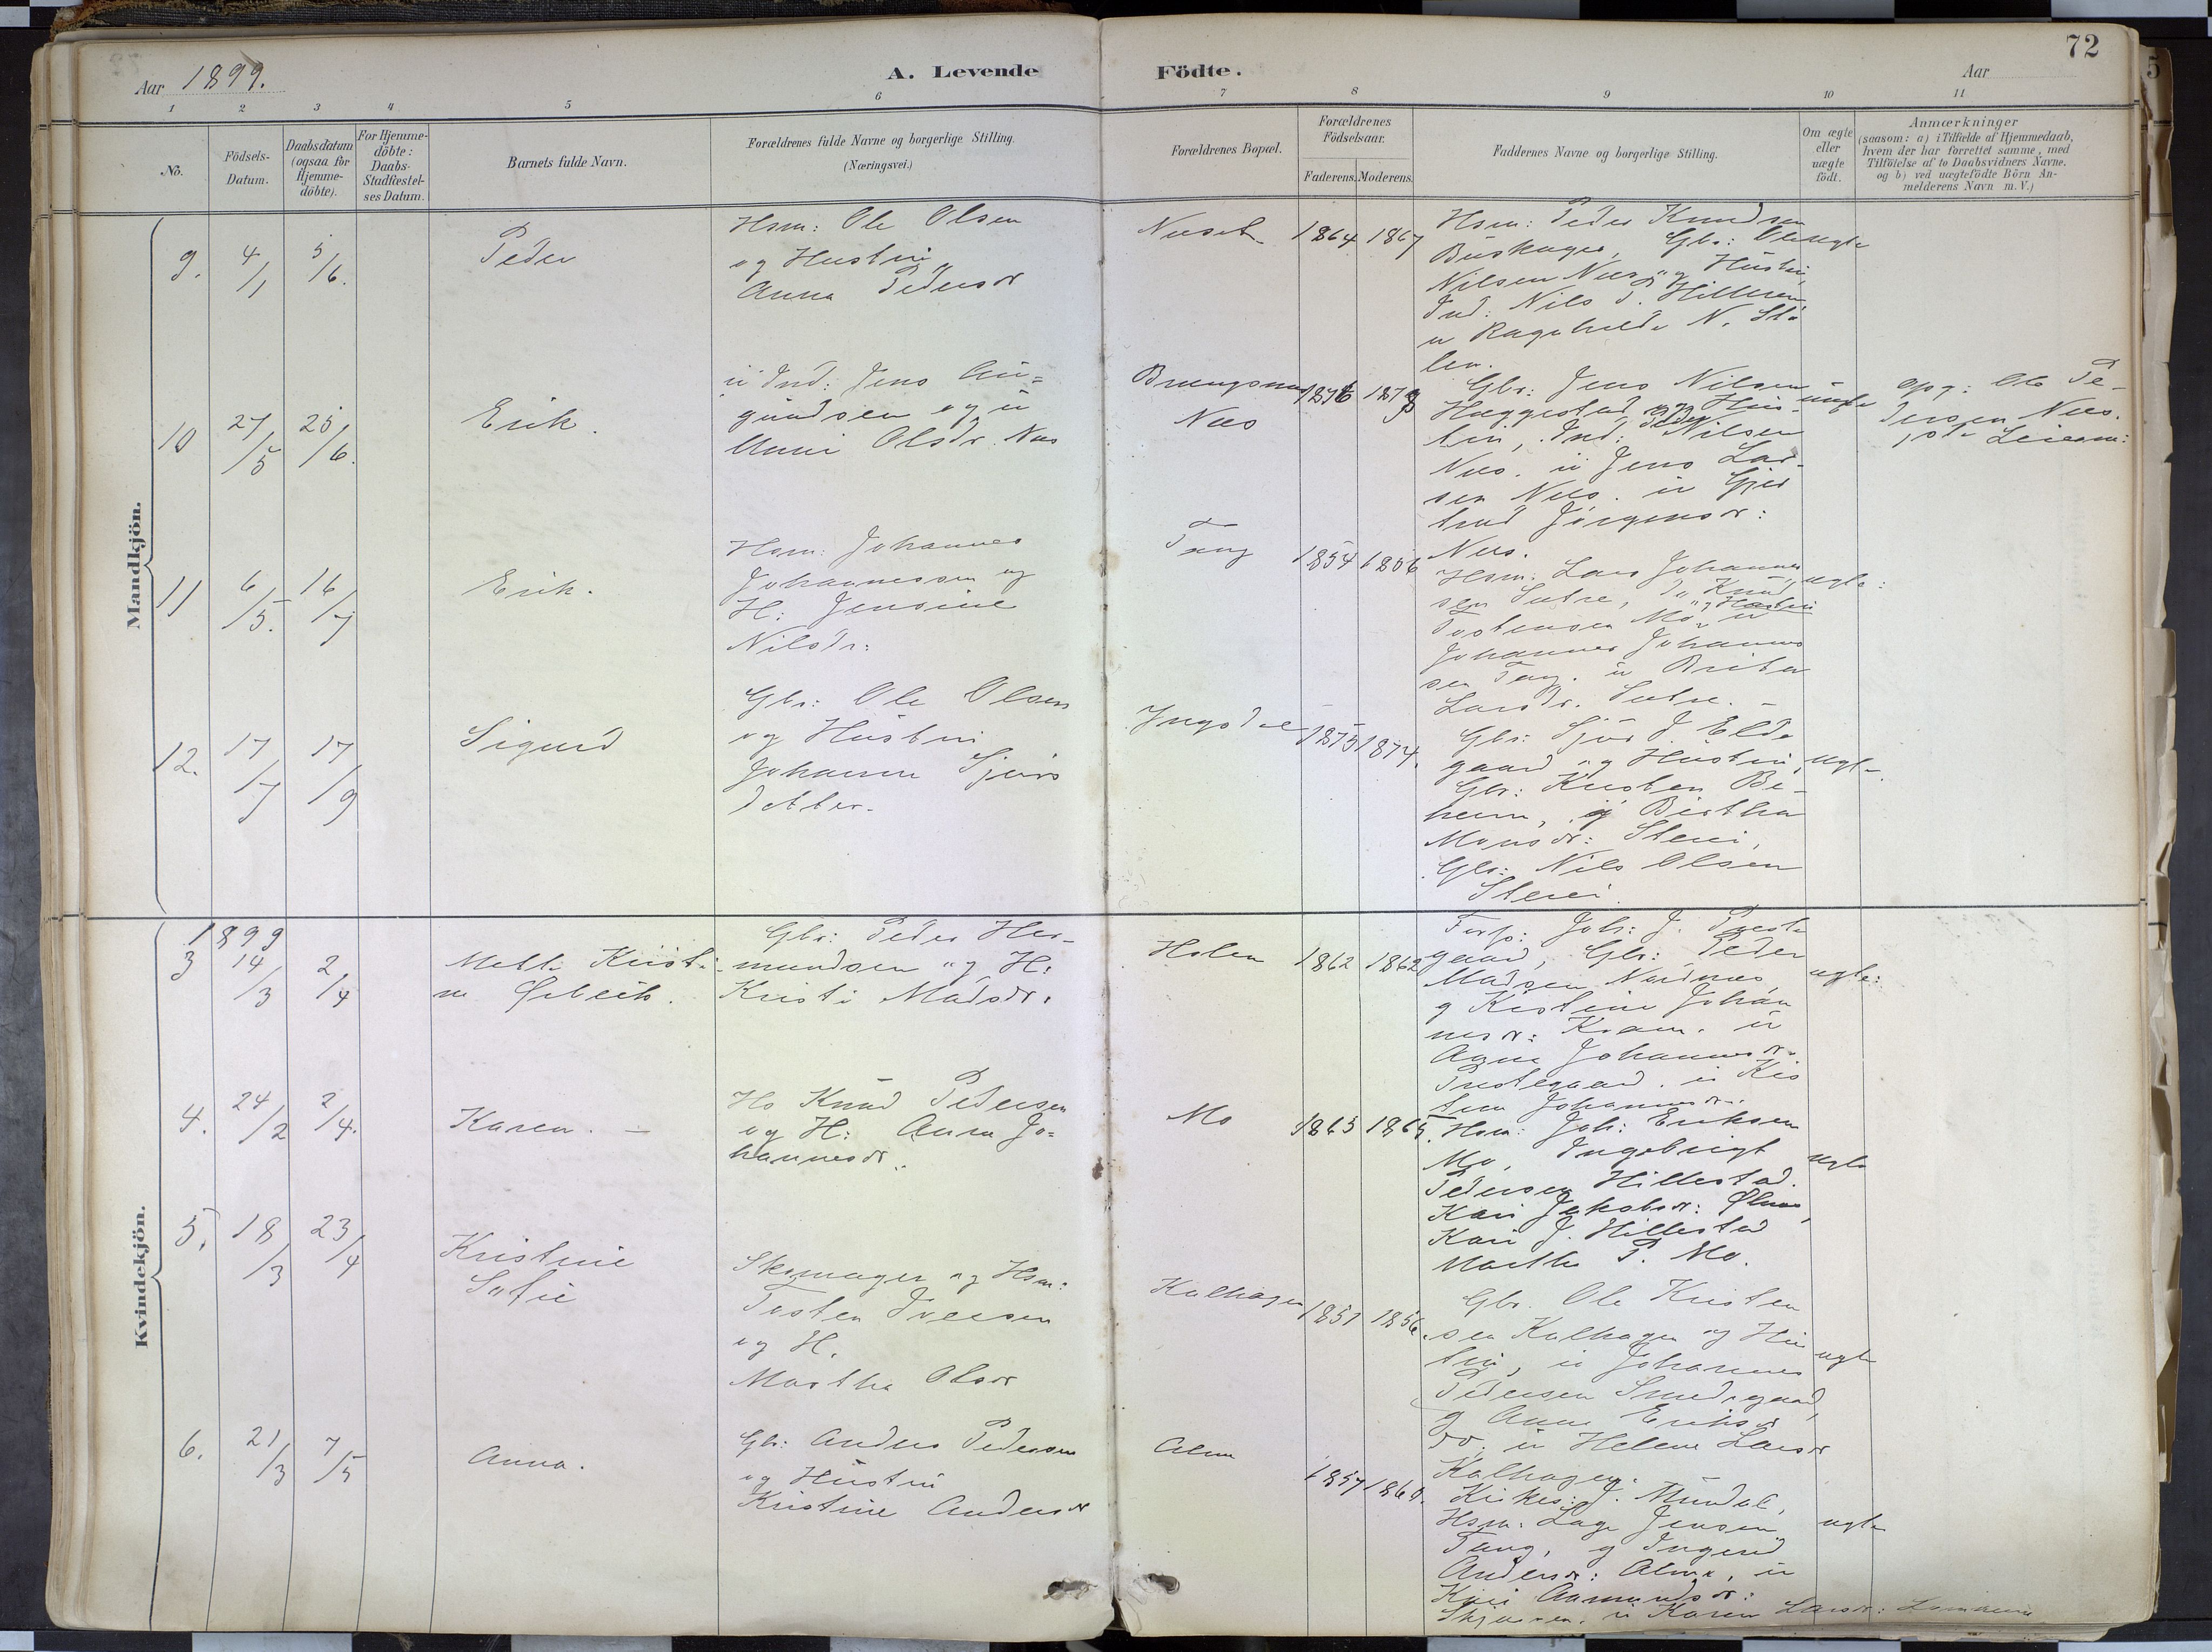 72
Aar 1899.
A. Levende Födte.
Aar
1 2 3 4 5 6 7 8 9 10 11
No.
Födsels-
Datum.
Daabsdatum
(ogsaa for
Hjemme-
döbte).
For Hjemme-
döbte:
Daabs-
Stadfæstel-
ses Datum.
Barnets fulde Navn.
Forældrenes fulde Navne og borgerlige Stilling.
(Næringsvei.)
Forældrenes Bopæl.
Forældrenes
Födselsaar.
Faderens. Moderens.
Faddernes Navne og borgerlige Stilling.
Om ægte
eller
uægte
födt.
Anmærkninger
(saasom: a) i Tilfælde af Hjemmedaab,
hvem der har forrettet samme, med
Tilföielse af to Daabsvidners Navne.
og b) ved uægtefödte Börn An-
melderens Navn m. V.)
Mandkjön.
9. 4/1 5/6. Peder
Hsm: Ole Olsen
og Hustru
Anna Pedersdr
1864 1867
Hsm: Peder Knudsen
Gbr: Ole
Nilsen og Hustru
Ind: Nils
Ragnhilde N. Stö
len.
ægte
10 27/5 25/6. Erik.
u Ind: Jens Au=
gundsen og u
Unni Olsdr. Næs
Næs
1876 1879
Gbr: Jens Nilsen
Hæggestad og Hus-
tru, Ind: Peder Nilsen
Næs. u Jens Lar-
sen Næs. u Gjer
trud Jörgensdr:
Næs.
uægte
Opg: Ole Pe-
dersen Næs.
11 6/5. 16/7 Erik.
Hsm: Johannes
Johannessen og
H: Jensine
Nilsdr:
Tang
1854 1856
Hsm: Lars Johannes
sen Sætre, Do Knud
Tostensen Mo og Hustru u
Johannes Johannes
sen Tang. u Brita
Larsdr. Sætre. -
ægte:
12. 17/7 17/9 Sigurd
Gbr: Ole Olsen
og Hustru
Johanne Sjurs
datter.
1875 1874.
Gbr: Sjur J. Elde
gaard og Hustru,
Gbr: Kristen Be-
heim, og Bertha
Monsdr: Steni,
Gbr: Nils Olsen
Steni.
ægte.
Kvindekjön.
1899
3 14/3 2/4 Mette Kristi-
ne
Gbr: Peder Her-
mundsen og H:
Kristi Madsdr.
Holen
1862 1862
Joh: J. Preste
gaard, Gbr: Peder
Madsen Nordnæs
og Kistine Johan
nesdr: Kvam. u
Anne Johannesdr.
Prestegaard. u Kis
tine Johannesdr.
ægte:
4. 24/2 2/4. Karen. -
Hs Knud Pedersen
og H: Anna Jo=
hannesdr.
Mo
1863 1865.
Hsm: Joh: Eriksen
Mo, Ingebrigt
Pedersen Hillestad.
Kari Jakobsdr:
Kari J. Hillestad
Martha P. Mo.
ægte
5. 18/3 23/4
Kristine
Sofie
Skomager og Hsm:
Tosten Iversen
og H.
Martha Olsdr
Kalhagen
1851 1856.
Gbr. Ole Kristen
sen Kalhagen og Hus
tru, u Johannes
Pedersen Smedegaard,
og Anne Eriksdr
do. u Helene Larsdr
Kalhagen.
ægte
6. 21/3 7/5 Anna.
Gbr: Anders Pedersen
og Hustru
Kristine Andersdr
Alme
1857 1860.
Kirkes: J. Mundal,
Hsm: Lage Jensen
Tang, og Ingerid
Andersdr: Alme, u
Kari Aamundsdr:
u Karen Larsdr:
ægte